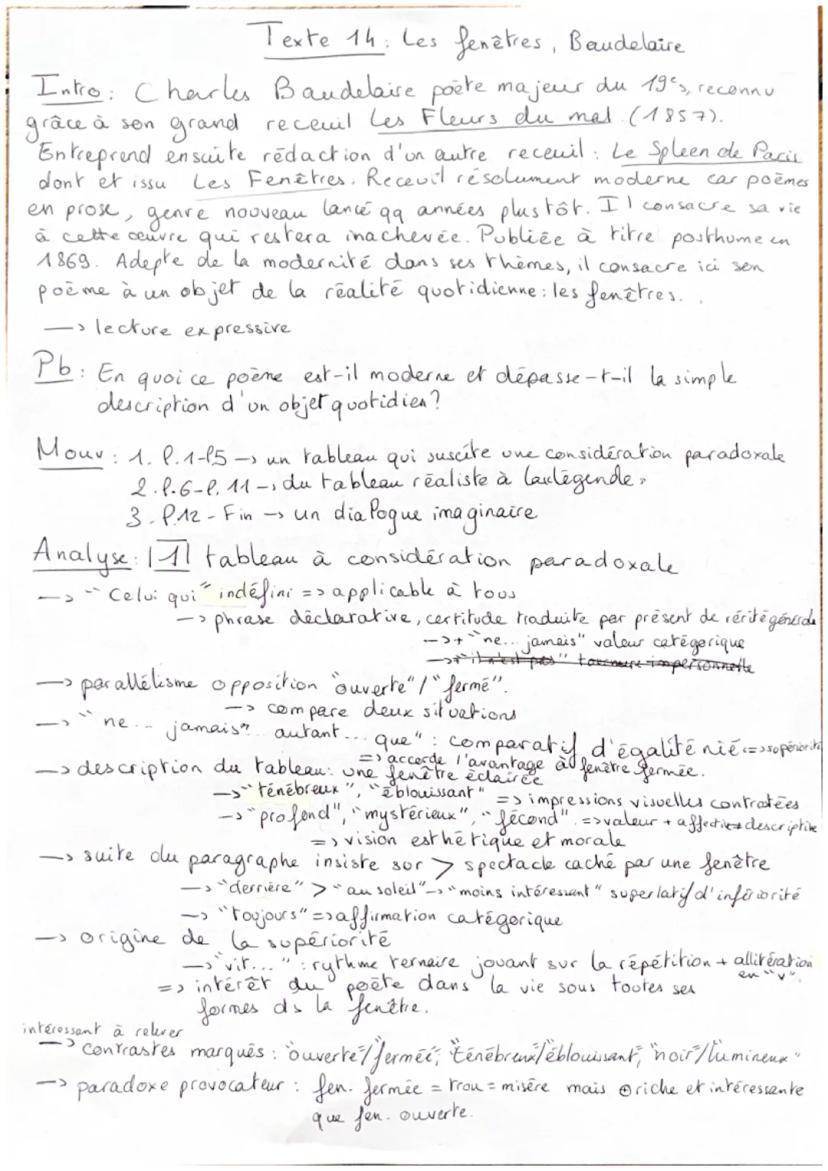 Texte 14 : Les fenêtres, Baudelaire
Intro : Charles Baudelaire poète majeur du 19e s, reconnu
grâce à son grand receuil Les Fleurs du mal. (1857).
Entreprend ensuite rédaction d'un autre receuil : Le Spleen de Paris
dont et issu Les Fenêtres. Receuil résolument moderne car poèmes
en prose, genre nouveau lancé qq années plus tôt. Il consacre sa vie
à cette œuvre qui restera inachevée. Publiée à titre posthume en
1869. Adepte de la modernité dans ses thèmes, il consacre ici son
poème à un objet de la réalité quotidienne : les fenêtres.
—> lecture expressive
Pb : En quoi ce poème est-il moderne et dépasse-t-il la simple
description d'un objet quotidien ?
Mouv : 1. l.1-l5 —> un tableau qui suscite une considération paradoxale
2. l.6-l.11 —> du tableau réaliste à la "légende"
3. l.12 - Fin —> un dialogue imaginaire
Analyse : |1| tableau à considération paradoxale
—> "Celui qui" indéfini => applicable à tous
—> phrase déclarative, certitude traduite par présent de vérité générale
—> + "ne... jamais" valeur catégorique
—> + "il n'est pas" tournure impersonnelle
—> parallélisme opposition "ouverte" / "fermé".
—> compare deux situations
—> "ne... jamais... autant... que" : comparatif d'égalité nié => supériorité
=> accorde l'avantage à fenêtre fermée.
—> description du tableau : une fenêtre éclairée
—> "ténébreux", "éblouissant" => impressions visuelles contratées
—> "profond", "mystérieux", "fécond" => valeur + affective descriptive
=> vision esthétique et morale
—> suite du paragraphe insiste sur > spectacle caché par une fenêtre
—> "derrière" > "au soleil" —> "moins intéressant" superlatif d'infériorité
—> "toujours" => affirmation catégorique
—> origine de la supériorité
—> "vit..." : rythme ternaire jouant sur la répétition + allitération
en "v"
=> intérêt du poète dans la vie sous toutes ses
formes ds la fenêtre.
intéressant à relever
—> contrastes marqués : "ouverte"/"fermée", "ténébreux"/"éblouissant", "noir"/"lumineux"
—> paradoxe provocateur : fen. fermée = trou = misére mais ⊕ riche et intéressante
que fen. ouverte.